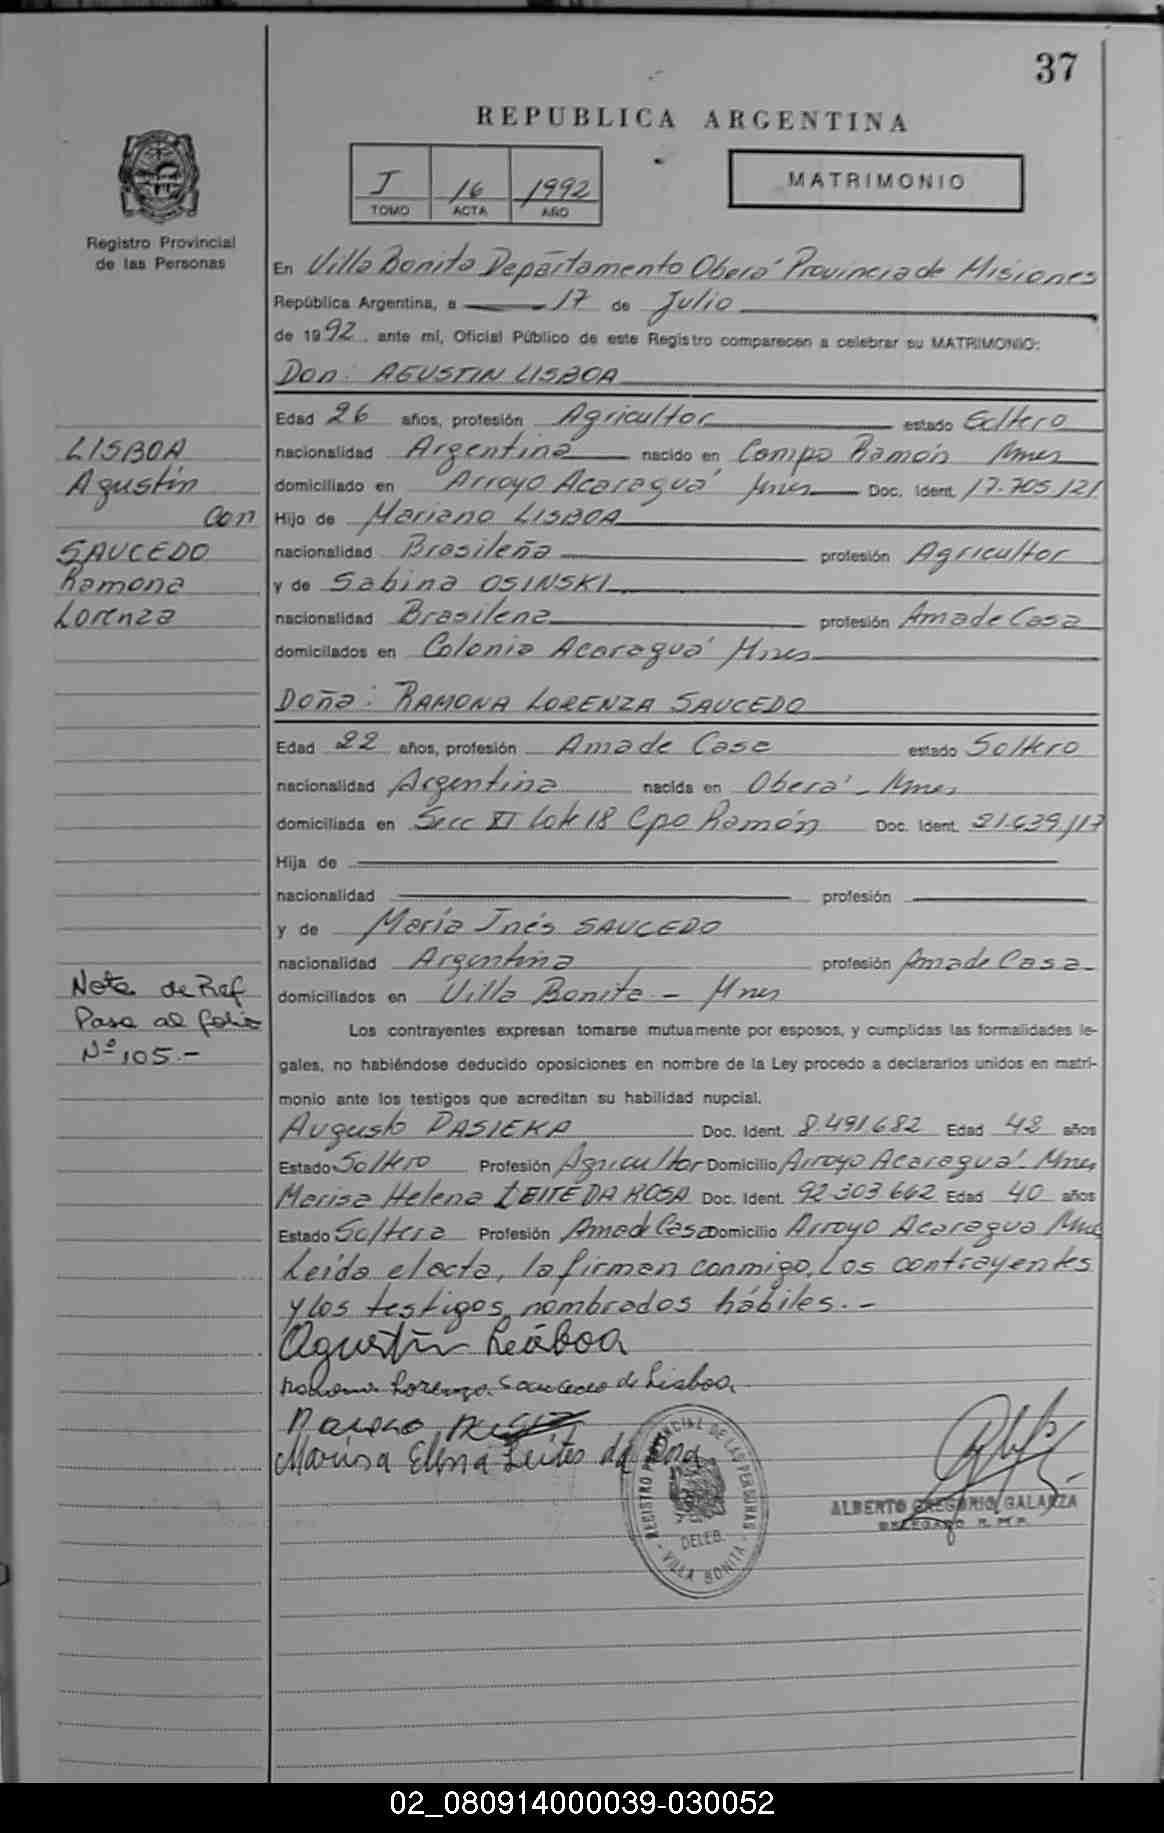 37
REPUBLICA ARGENTINA
I 16 1992
TOMO ACTA AÑO
MATRIMONIO
Registro Provincial
de las Personas
En Villa Bonita Departamento Oberá Provincia de Misiones
República Argentina, a 17 de Julio
de 1992, ante mí, Oficial Público de este Registro comparecen a celebrar su MATRIMONIO:
Don: AGUSTIN LISBOA
Edad 26 años, profesión Agricultor estado Soltero
nacionalidad Argentina nacido en Campo Ramón Mnes
domiciliado en Arroyo Acaraguá Mnes Doc. Ident. 17.705.121
Hijo de Mariano LISBOA
nacionalidad Brasileña profesión Agricultor
y de Sabina OSINSKI
nacionalidad Brasilena profesión Ama de Casa
domicilados en Colonia Acaraguá Mnes
LISBOA
Agustín
con
SAUCEDO
Ramona
Lorenza
Doña: RAMONA LORENZA SAUCEDO
Edad 22 años, profesión Ama de Casa estado Soltero
nacionalidad Argentina nacida en Oberá - Mnes
domiciliada en Secc XI Lote 18 Cpo Ramón Doc. Ident. 21.639.117
Hija de
nacionalidad profesión
y de María Inés SAUCEDO
nacionalidad Argentina profesión Ama de Casa
domiciliados en Villa Bonita - Mnes
Nota de Ref
Pasa al folio
Nº 105.-
Los contrayentes expresan tomarse mutuamente por esposos, y cumplidas las formalidades le-
gales, no habiéndose deducido oposiciones en nombre de la Ley procedo a declararlos unidos en matri-
monio ante los testigos que acreditan su habilidad nupcial.
Augusto DASIEKA Doc. Ident. 8.491.682 Edad 42 años
Estado Soltero Profesión Agricultor Domicilio Arroyo Acaraguá Mnes
Marisa Helena LEITE DA ROSA Doc. Ident. 92.303.662 Edad 40 años
Estado Soltera Profesión Ama de Casa Domicilio Arroyo Acaragua Mnes
Leida el acta, la firman conmigo, Los contrayentes
y los testigos nombrados hábiles.-
Agustín Lisboa
Ramona Lorenza Saucedo de Lisboa
Marisa Elena Leites da Rosa
REGISTRO PROVINCIAL DE LAS PERSONAS
DELEG.
- VILLA BONITA -
ALBERTO GREGORIO GALARZA
DELEGADO R. P. P.
02_080914000039-030052